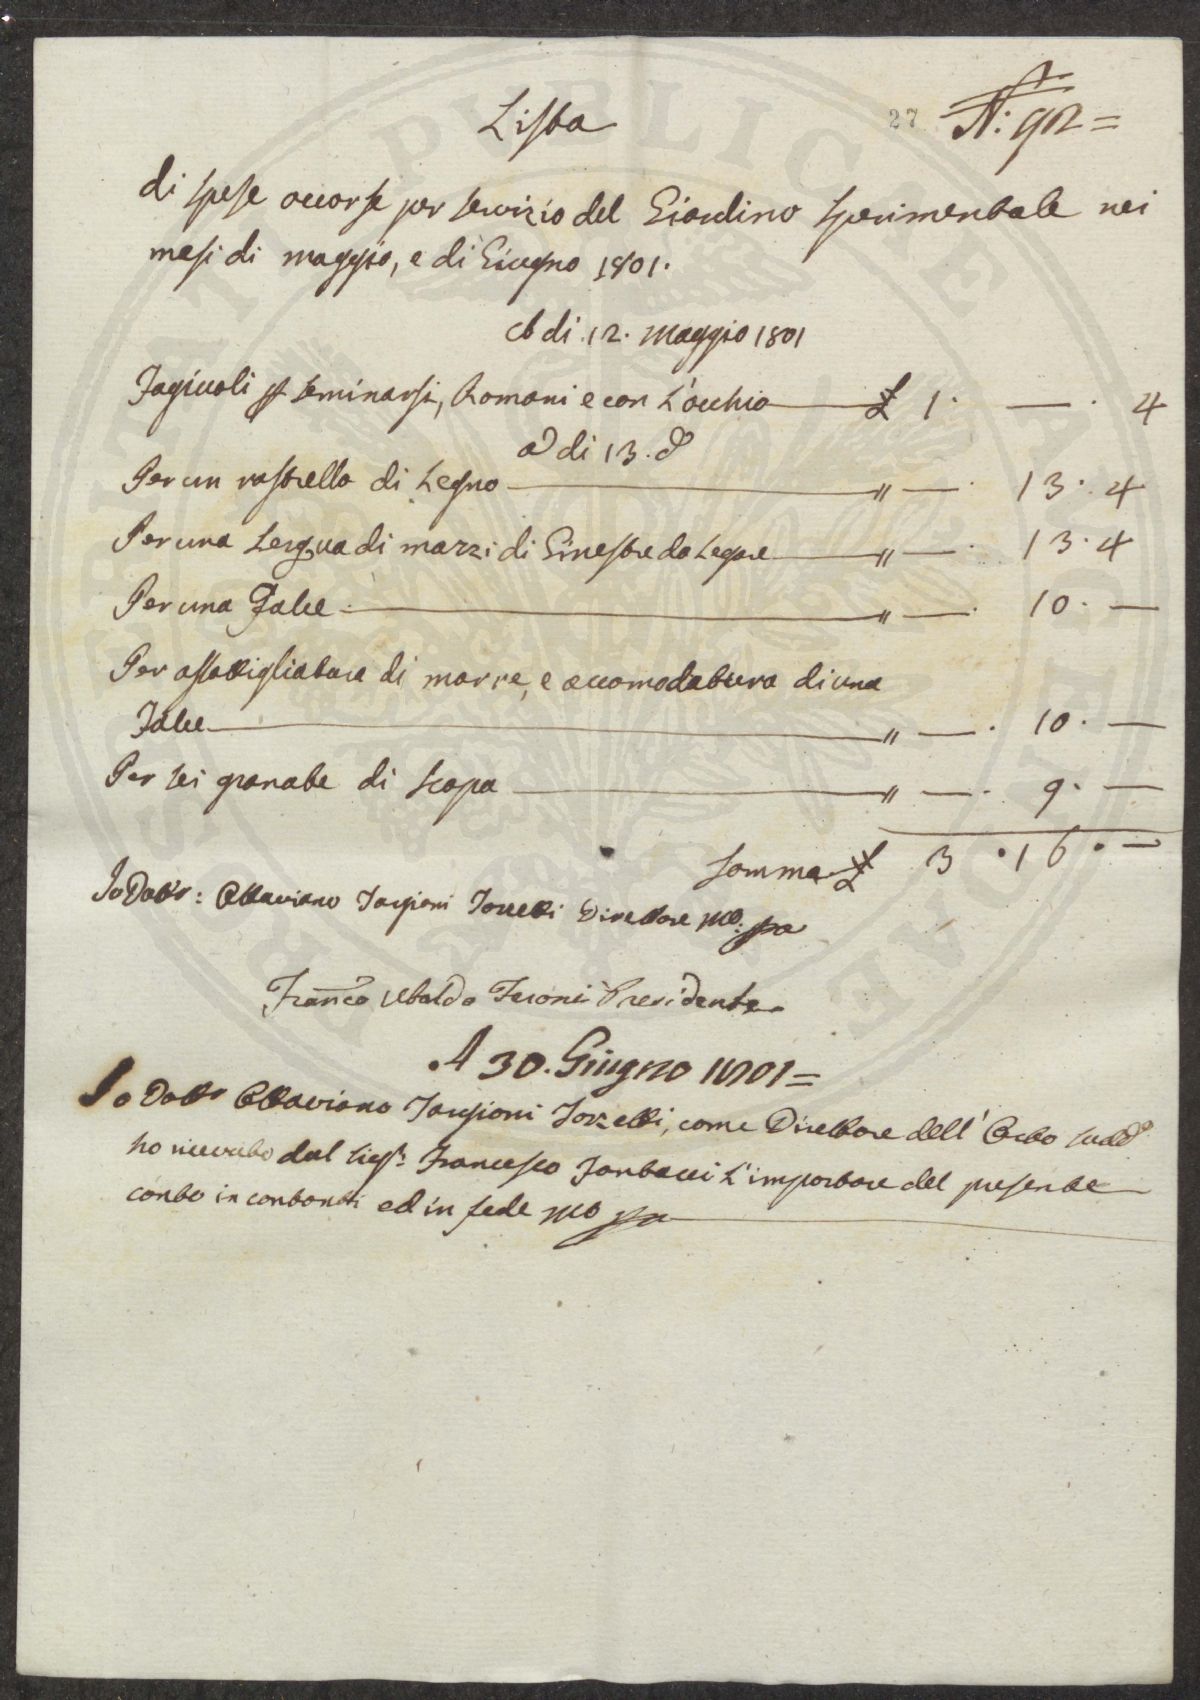 27 N: 92=
Lista
di spese occorse per servizio del Giardino sperimentale nei
mesi di maggio, e di Giugno 1801.
A di 12. maggio 1801
Fagiuoli p seminarsi, Romani e con L'occhio £ 1. —. 4
a di 13. do
Per un rastrello di Legno " —. 13. 4
Per una di mazzi di Ginestre da Legare " —. 13. 4
Per una Falce " —. 10. —
Per assottigliature di marre, e accomodatura di una
Falce " —. 10. —
Per sei granate di scopa " —. 9. —
Somma £ 3. 16. —
Io Dottr: Ottaviano Targioni Tozzetti Direttore mo: ppa
Franco Ubaldo Feroni Presidente
A 30. Giugno 1801=
Io Dottr Ottaviano Targioni Tozzetti, come Direttore dell'Orto sudd.o
ho ricevuto dal Sigr: Francesco L'importare del presente
conto in contanti ed in fede mo ppa